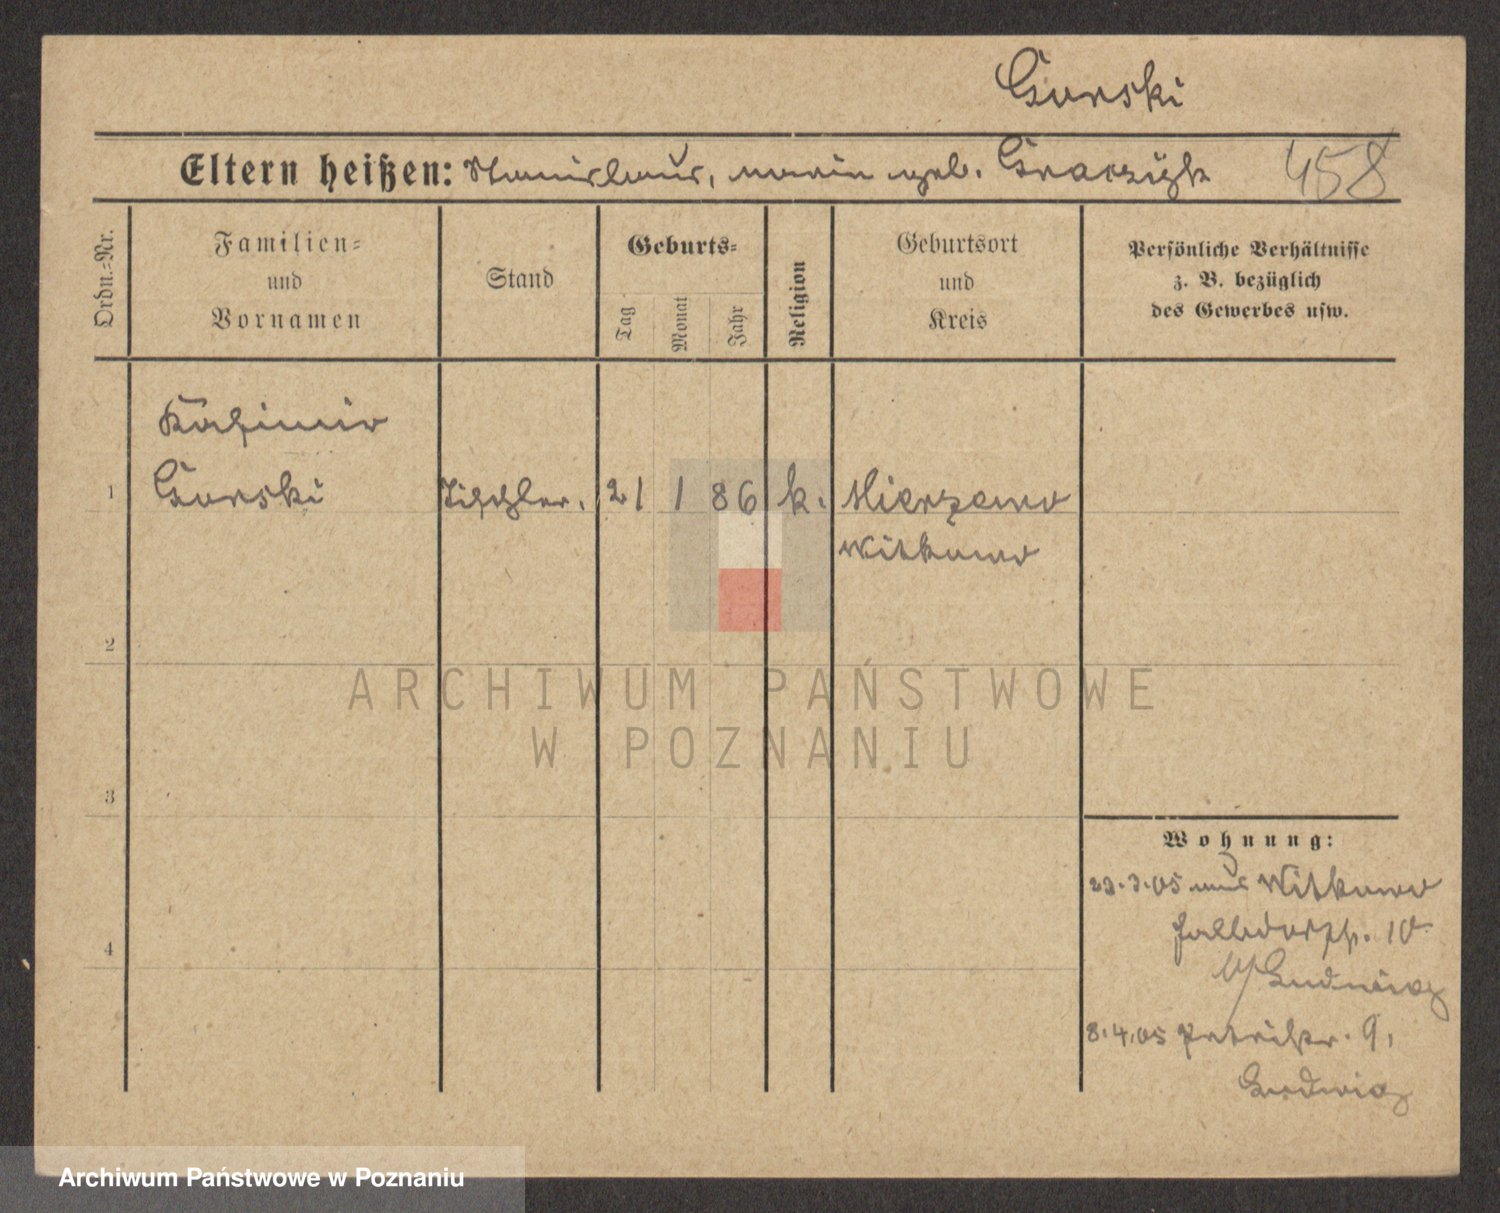 Gorski
Eltern heißen: Stanislaus, Marie geb. Graczyk 458
Ordn.=Nr.
Familien=
und
Vornamen
Stand
Geburts=
Tag
Monat
Jahr
Religion
Geburtsort
und
Kreis
Persönliche Verhältnisse
z. B. bezüglich
des Gewerbes usw.
Kasimir
1 Gorski Tischler. 21 1 86 k. Mierzewo
Witkowo
2
3
4
Wohnung:
23.3.05 aus Witkowo
Halbdorfstr. 10
8.4.05 Petristr. 9.
ARCHIWUM PAŃSTWOWE
W POZNANIU
Archiwum Państwowe w Poznaniu